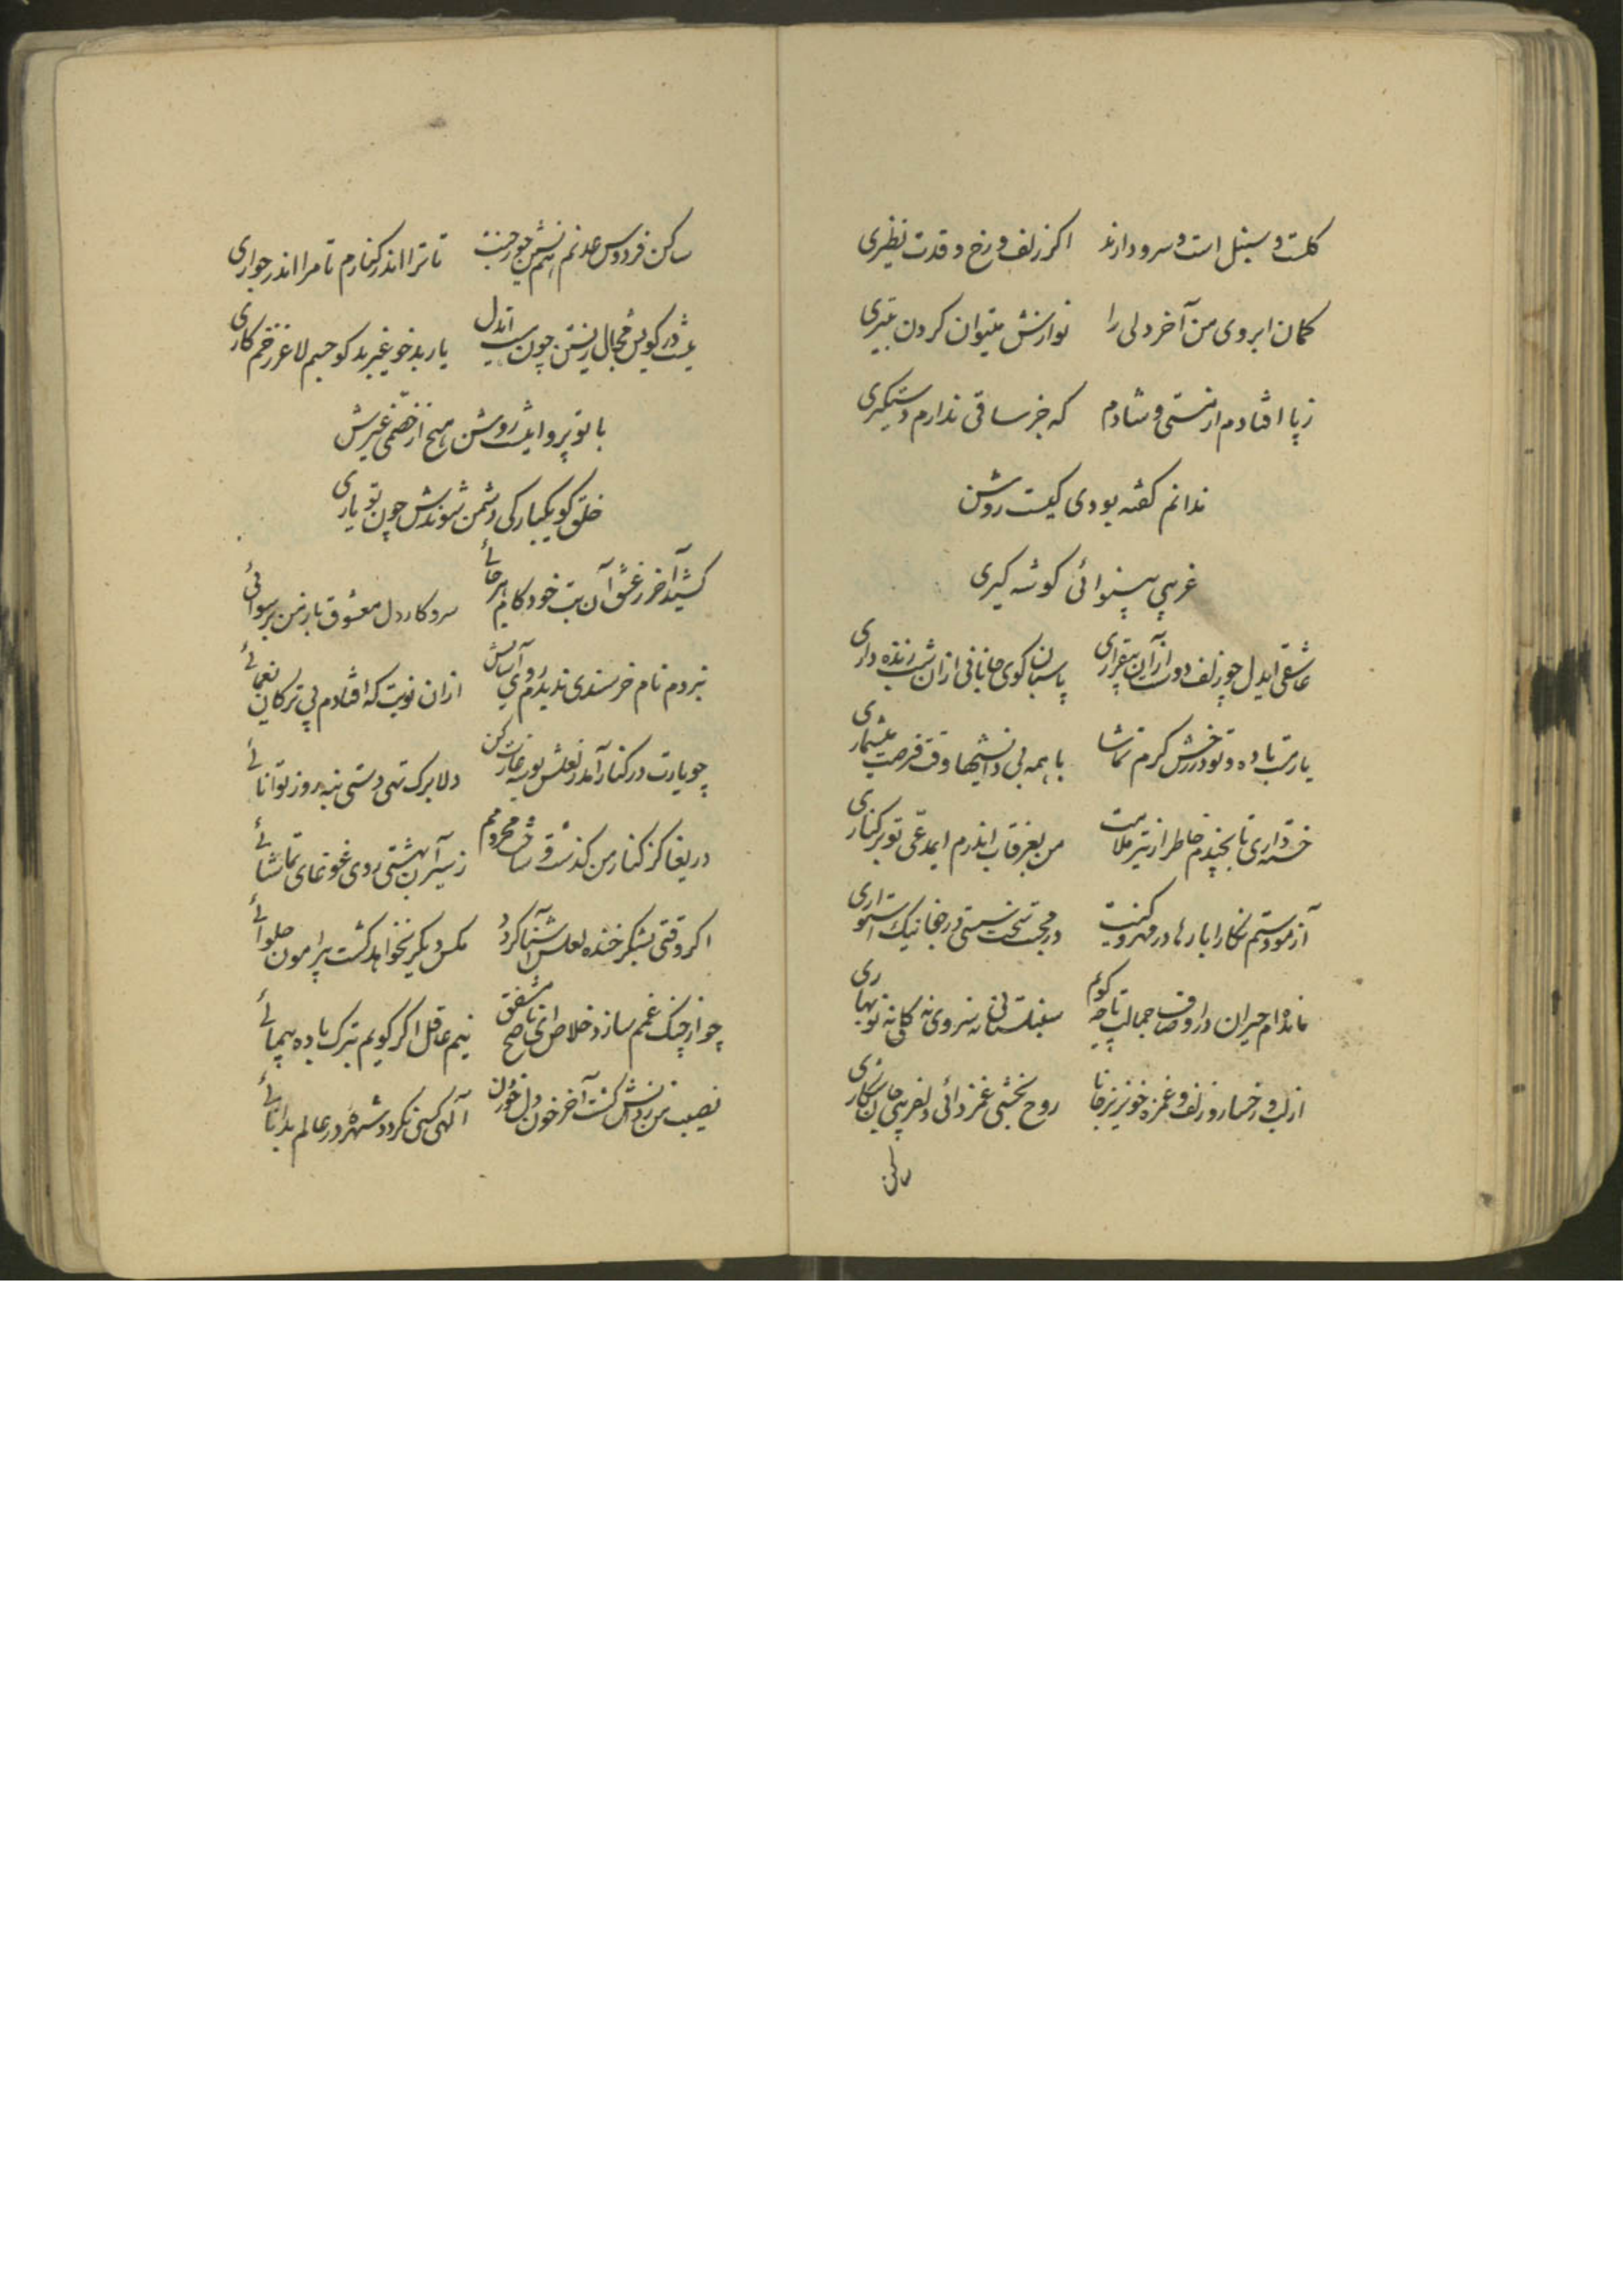 گلست و سنبل است و سرو دارند اگر زلف و رخ و قدت نظیری
کمان ابروی من آخر دلی را نوازش میتوان کردن بتیری
ز پا افتادم از مستی و شادم که جز ساقی ندارم دستگیری
ندانم گفته بودی کیست روشن
غریبی بینوائی گوشه گیری
عاشقی ایدل چو زلف دوست از آن بیقراری پاسبان کوی جانانی از آن شب زنده داری
یارت باده و تو در رخش گرم تماشا با همه بی دانشیها وقت فرصت میشماری
خسته داری تا بچندم خاطر از تیر ملامت من بغرقاب اندرم ایمدعی تو بر کناری
آزمودستم نگارا بارها در مهر و کینت در محبت سخت سستی در جفا نیک استواری
مانده ام حیران در اوصاف جمالت تا چه گویم سنبلستانی نه سروی نه گلی نه نوبهاری
از لب و رخسار و زلف و غمزه خونریز جانا روح بخشی غمزدائی دلفریبی جان شکاری
ساکن
ساکن فردوس عدنم همنشین حور جنت تا ترا اندر کنارم تا مرا اندر جواری
نیست در کویش مجال زیستن چون ایدل یار بدخو غیر بدگو جسم لاغر زخم کاری
با تو پروا نیست روشن هیچ از خصمی غیرش
خلق گو یکبارگی دشمن شوندش چون تو یاری
کشید آخر ز عشق آن بت خودکام هرجائی سر و کار دل معشوق باز من برسوائی
نبردم نام خرسندی ندیدم روی آسایش از آن نوبت که افتادم پی ترکان یغمائی
چو یارت در کنار آمد ز لعلش بوسه غارت کن دلا برگ تهی دستی بنه روز توانائی
دریغا کز کنار من گذشت و ساخت محرومم ز سیر آن بهشتی روی غوغای تماشائی
اگر وقتی بشکر خنده لعلش آشنا گردد مگس دیگر نخواهد گشت پیرامون حلوائی
چو از چنگ غمم سازد خلاص ای ناصح مشفق نیم عاقل اگر گویم بترک باده پیمائی
نصیب من ز دانش گشت آخر خون دل خوردن الهی کس نگردد شهره در عالم بدانائی